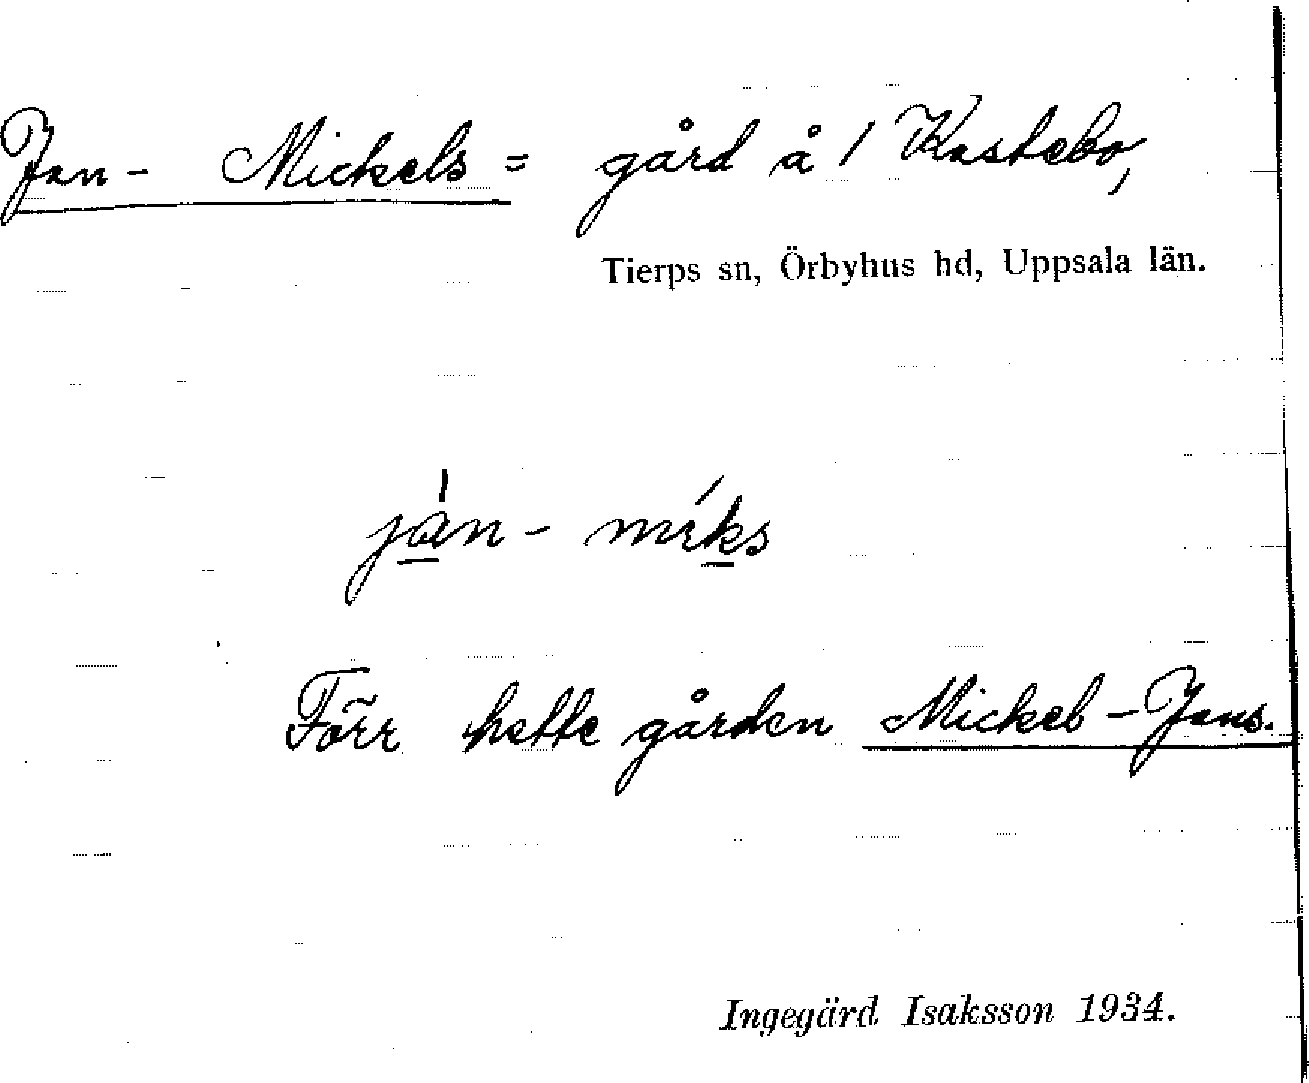 Jan - Mickels = gård å 1 Kastebo,
Tierps sn, Örbyhus hd, Uppsala län.
jàn - míks
Förr hette gården Mickels - Jans.
Ingegärd Isaksson 1934.